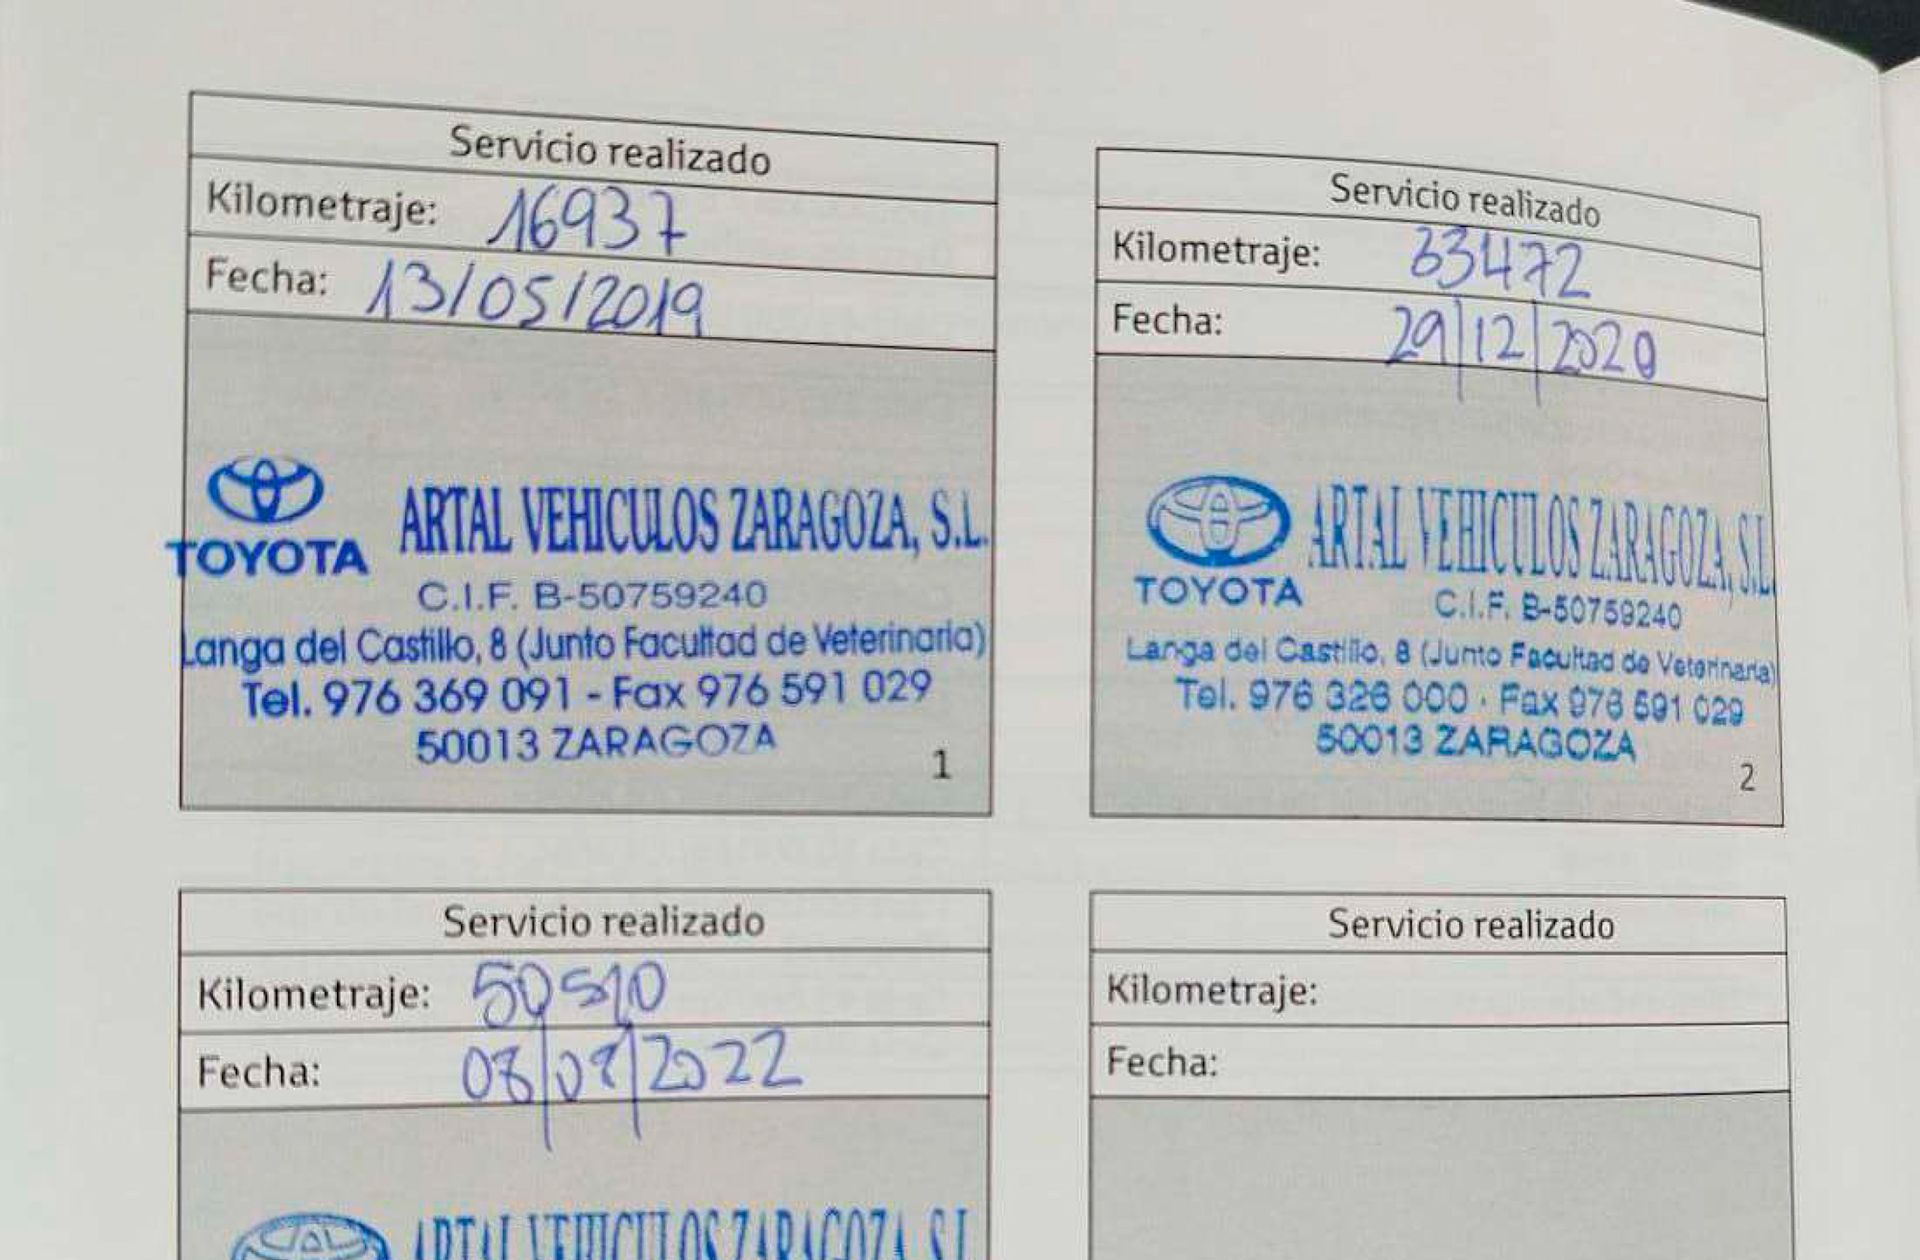 Servicio realizado
Kilometraje: 16937
Fecha: 13/05/2019
TOYOTA
ARTAL VEHICULOS ZARAGOZA, S.L.
C.I.F. B-50759240
Langa del Castillo, 8 (Junto Facultad de Veterinaria)
Tel. 976 369 091 - Fax 976 591 029
50013 ZARAGOZA
1
Servicio realizado
Kilometraje: 33472
Fecha: 29/12/2020
TOYOTA
ARTAL VEHICULOS ZARAGOZA, S.L.
C.I.F. B-50759240
Langa del Castillo, 8 (Junto Facultad de Veterinaria)
Tel. 976 326 000 · Fax 976 591 029
50013 ZARAGOZA
2
Servicio realizado
Kilometraje: 50510
Fecha:
ARTAL VEHICULOS ZARAGOZA, S.L.
Servicio realizado
Kilometraje:
Fecha: